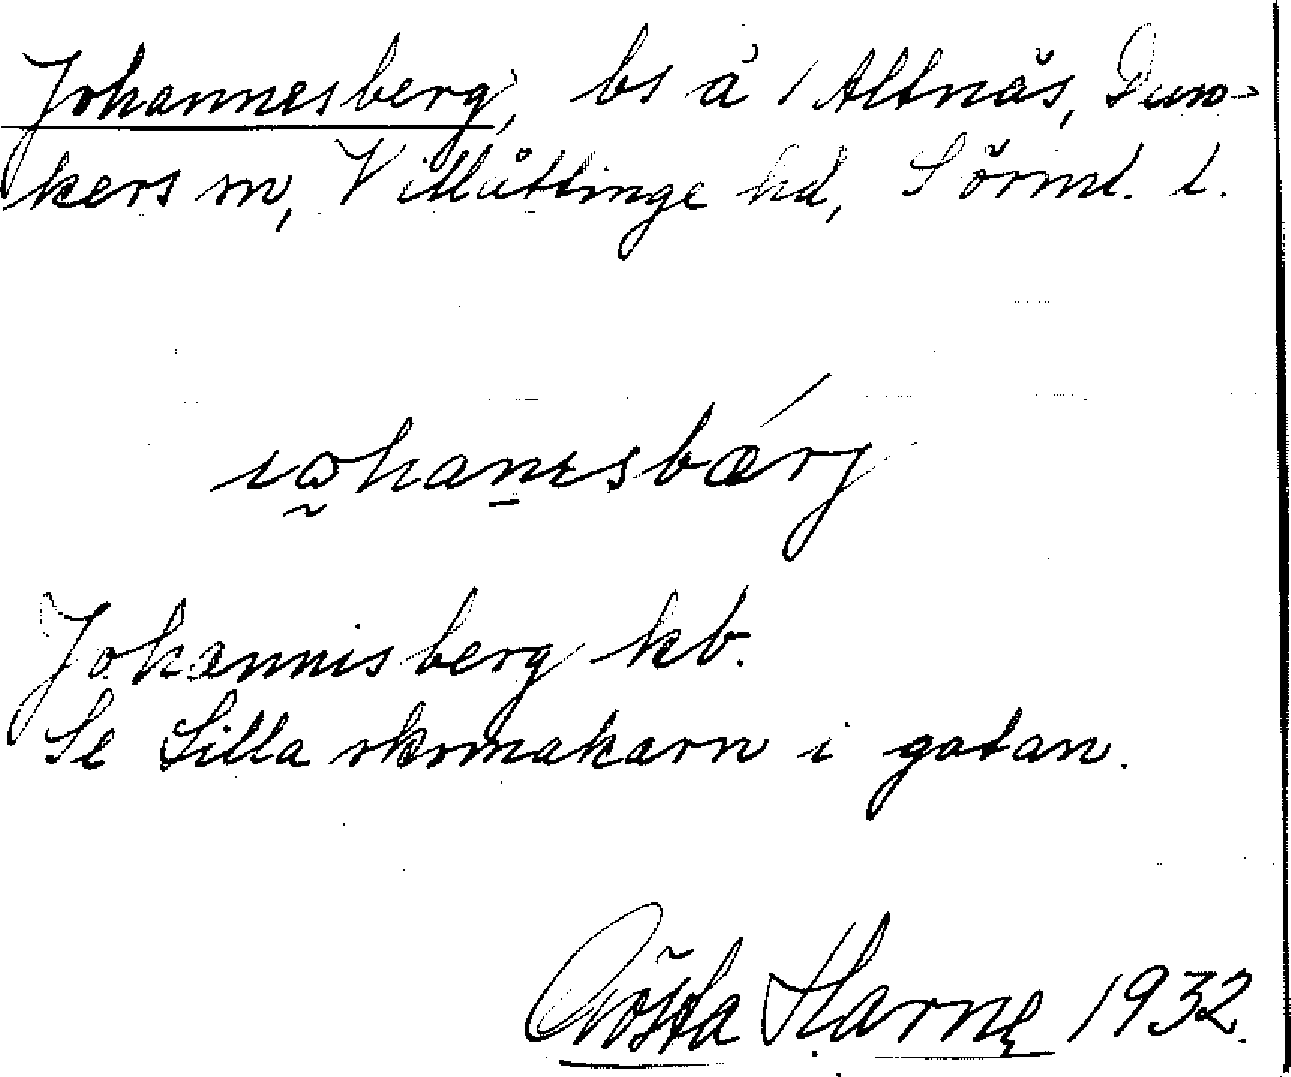 Johannesberg, bs å 1 Altnäs, Dun-
kers sn, Villåttinge hd, Sörml. l.
ıωhanısbǽrj
Johannisberg kb.
Se Lilla skomakarn i gatan.
Gösta Harne 1932.